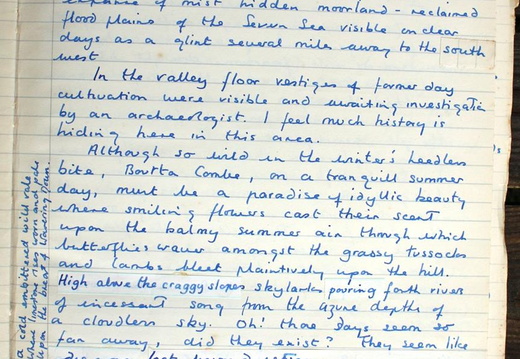 expanse of mist hidden moorland - reclaimed
flood plains of the Severn Sea visible on clear
days as a glint several miles away to the south
west.
In the valley floor vestiges of former day
cultivation were visible and awaiting investigation
by an archaeologist. I feel much history is
hiding here in this area.
Although so wild in the winter's heedless
bite, Bourta Combe, on a tranquill summer
day, must be a paradise of idyllic beauty
where smiling flowers cast their scent
upon the balmy summer air through which
butterflies waver amongst the grassy tussocks
and lambs bleet plaintively upon the hill.
High above the craggy slopes skylarks pouring forth rivers
of incessant song from the azure depths of
a cloudless sky. Oh! those days seem so
far away, did they exist? They seem like
a cold embittered wild vale
where limestone rises worn and pale
upon the breast of Wavering Down.